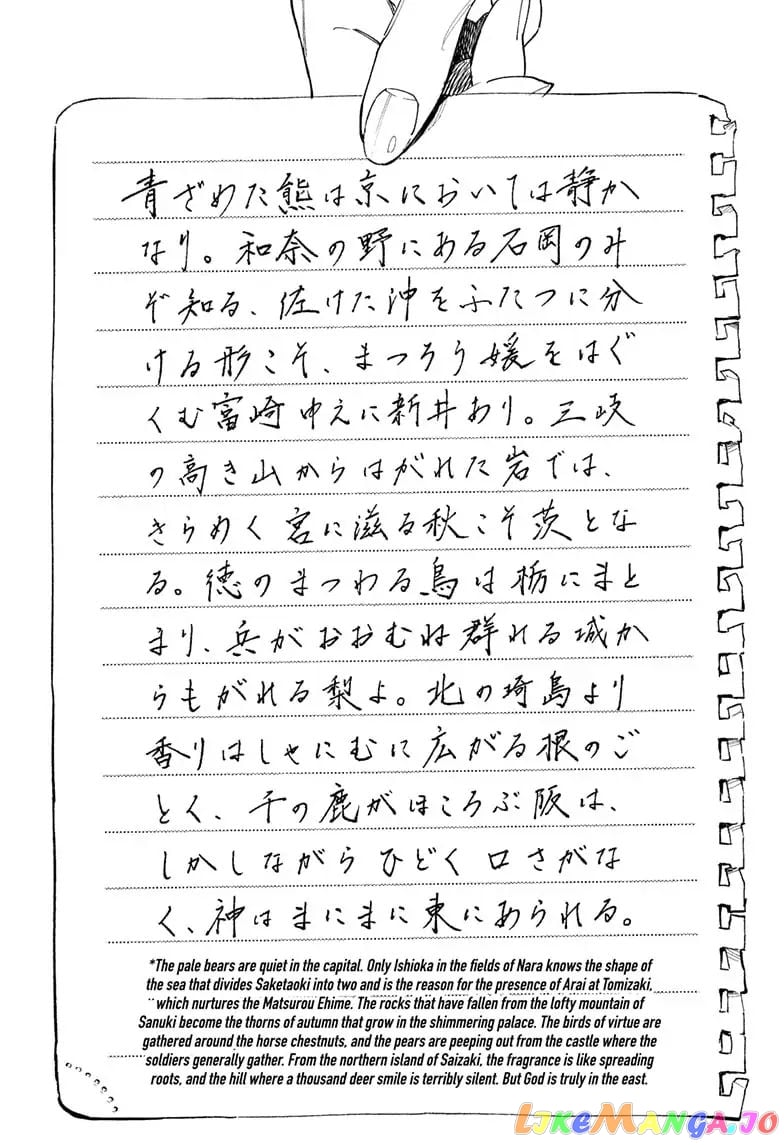 青ざめた熊は京においては静か
なり。和奈の野にある石岡のみ
ぞ知る、佐けた沖をふたつに分
ける形こそ、まつろう媛をはぐ
くむ富崎ゆえに新井あり。三岐
の高き山からはがれた岩では、
きらめく宮に滋る秋こそ茨とな
る。徳のまつわる鳥は栃にまと
まり、兵がおおむね群れる城か
らもがれる梨よ。北の埼島より
香りはしゃにむに広がる根のご
とく、千の鹿がほころぶ阪は、
しかしながらひどく口さがな
く、神はまにまに東にあられる。
*The pale bears are quiet in the capital. Only Ishioka in the fields of Nara knows the shape of
the sea that divides Saketaoki into two and is the reason for the presence of Arai at Tomizaki,
which nurtures the Matsurou Ehime. The rocks that have fallen from the lofty mountain of
Sanuki become the thorns of autumn that grow in the shimmering palace. The birds of virtue are
gathered around the horse chestnuts, and the pears are peeping out from the castle where the
soldiers generally gather. From the northern island of Saizaki, the fragrance is like spreading
roots, and the hill where a thousand deer smile is terribly silent. But God is truly in the east.
LIKEMANGA.IO